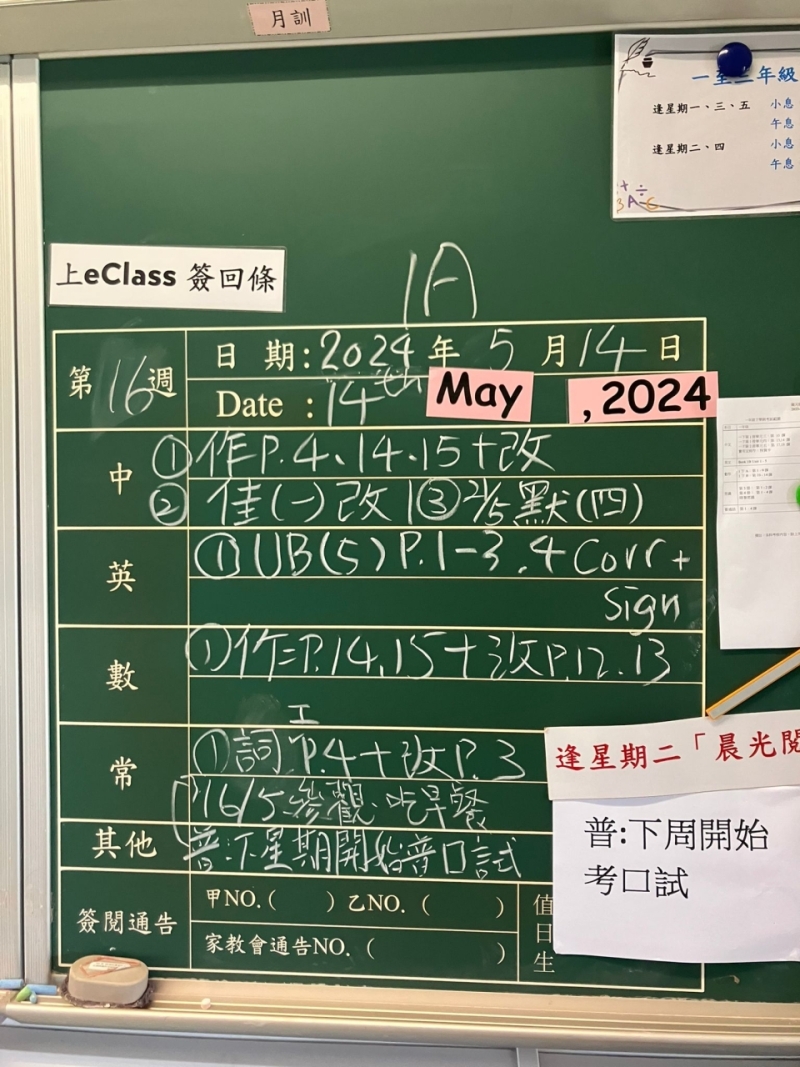 月訓
一至二年級
逢星期一、三、五 小息
午息
逢星期二、四 小息
午息
上eClass 簽回條
1A
第16週
日 期:2024年5月14日
Date :14th May ,2024
中
①作P.4、14.15+改
②佳(一)改 ③2/5默(四)
英
①UB(5)P.1-3.4 Corr+
Sign
數
①作二P.14.15+改P.12.13
常
①詞工P.4+改P.3
16/5參觀、吃早餐
其他
普:下星期開始普口試
逢星期二「晨光閱
普:下周開始
考口試
簽閱通告
甲NO.( ) 乙NO. ( )
家教會通告NO. ( )
值日生